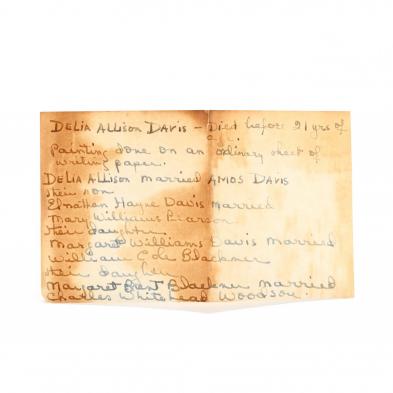 DELIA ALLISON DAVIS - Died before 21 yrs of
age
Painting done on an ordinary sheet of
writing paper.
DELIA ALLISON married AMOS DAVIS
their son
Elnathan Hayne Davis married
Mary Williams Pearson.
their daughter
Margaret Williams Davis married
William Cole Blackmer
their daughter
Margaret Blackmer married
Charles Whitehead Woodson.